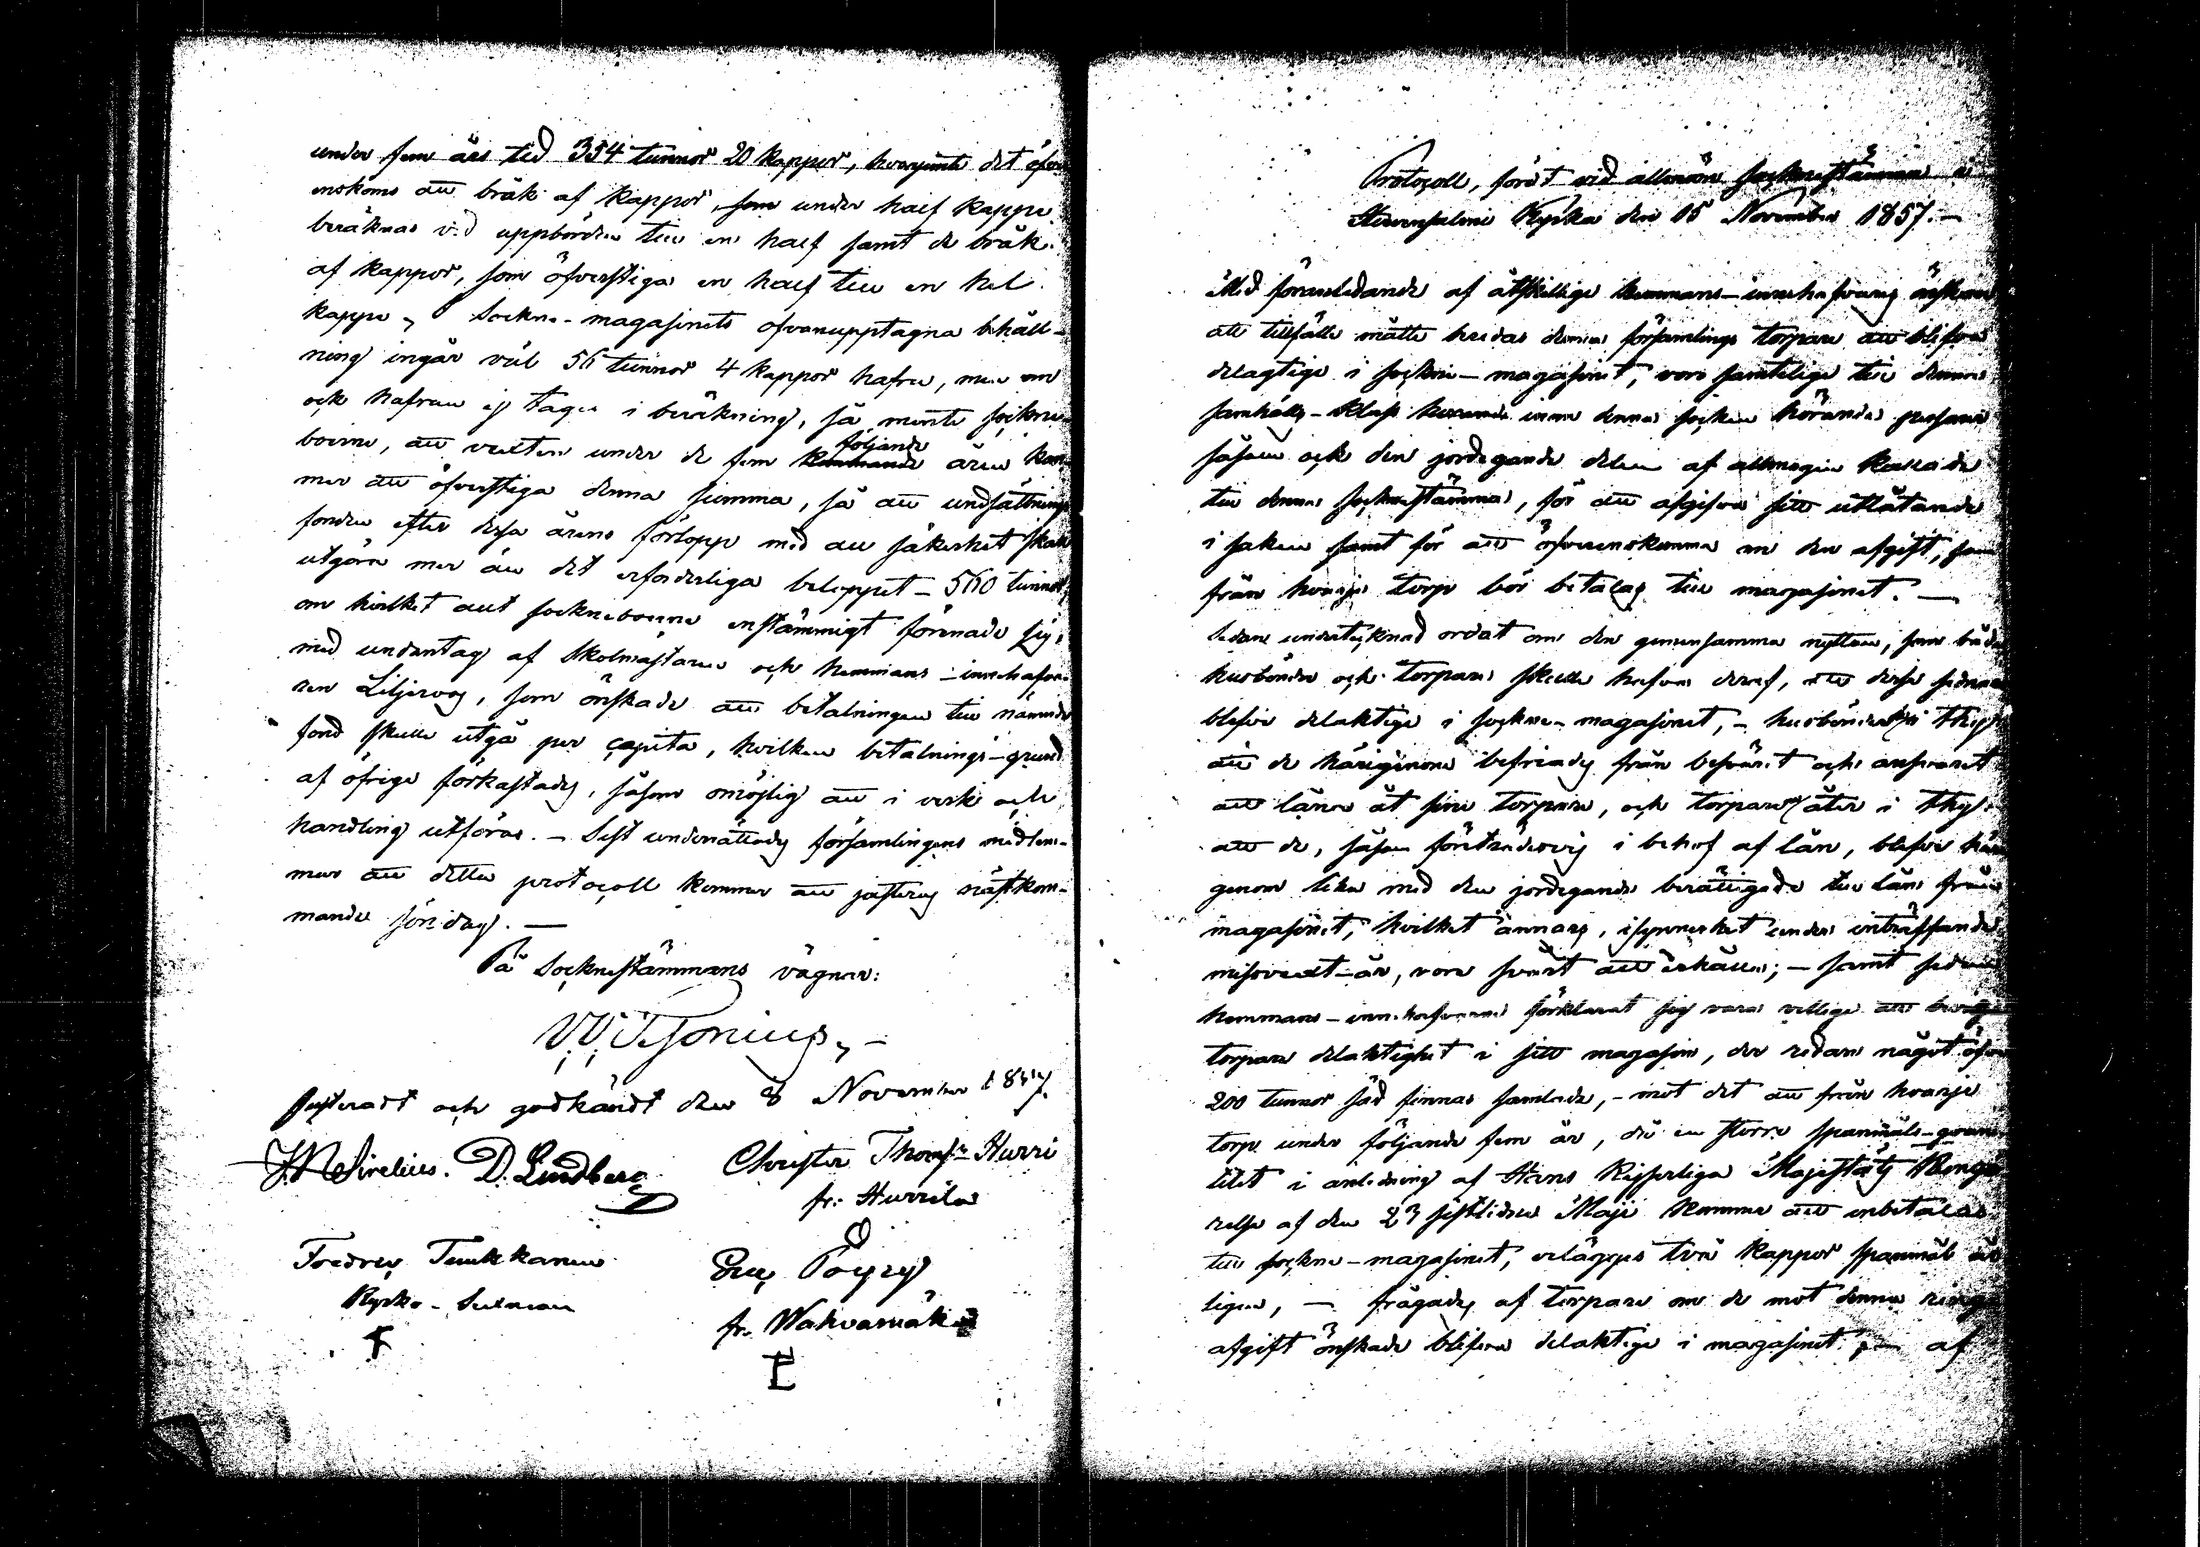 under fem års tid 354 tunnor 20 kappor, hvarjemte det öfver
enskoms att bråk af kappor, som under half kappe
beräknas vid uppbörden till en half samt de bråk
af kappor, som öfverstiga en half till en hel
kappe. Sockne-magasinets ofvanupptagna behåll-
ning ingår väl 56 tunnor 4 kappor hafre, men om
ock hafran ej tages i beräkning, så mente sockne-
boerne, att vexten under de fem följande åren kom-
mer att öfverstiga denna summa, så att undsättnings
fonden efter dessa årens förlopp med all säkerhet skall
utgöra mer än det erforderliga beloppet – 560 tunnor,
om hvilket allt socknboerne enstämmigt förenade sig,
med undantag af Skolmästaren och hemmans-innehafva-
ren Liljeroos, som önskade att betalningen till nämnde
fond skulle utgå per capita, hvilken betalnings-grund
af öfrige förkastades, såsom omöjlig att i verk och
handling utföras. – Sist underrättades församlingens medlem-
mar att detta protocoll kommer att justeras nästkom-
mande söndag. —
På Socknestämmans vägnar:
W. Wesonius. –
Justeradt och godkändt den 8 November 1857.
J. N. Sirelius. D. Lindberg
Christer Thomss:n Hurri
fr. Hurrila
Fredric Tuukkanen
Kyrko-
Eric Pöyry
fr. Wahvamäki
Protocoll, fördt vid allmän socknestämma i
Kyrka den 15 November 1857. —
Med föranledande af åtskillige hemmans-innehafvares önskan
att tillfälle måtte beredas denna församlings torpare att blifva
delagtige i sockne-magasinet, voro samtelige till denna
samhälls-klass inom denna socken hörande personer
såsom ock den jordegande delen af allmogen kallade
till denna socknestämma, för att afgifva sitt utlåtande
i saken samt för att öfverenskomma om den afgift, som
från hvarje torp bör betalas till magasinet. —
Sedan undertecknad ordat om den gemensamma nyttan, som både
husbönder och torpare skulle hafva deraf, att desse sednare
blefve delaktige i sockne-magasinet, – husbönderne i thy
att de härigenom befriades från besväret och ansvaret
att låna åt sine torpare, och torparne åter i thy
att de, såsom företrädesvis i behof af lån, blefve häri-
genom lika med den jordegande berättigade till lån från
magasinet, hvilket annars, isynnerhet under inträffande
missvext-år, vore svårt att erhålla; – samt sedan
hemmans-innehafvarne förklarat sig vara villige att bevilja
torpare delaktighet i sitt magasin, der redan något öfver
200 tunnor säd finnas samlade, – mot det att från hvarje
torp under följande fem år, då en större spanmåls-quan-
titet i anledning af Hans Kejserliga Majestäts Kungö-
relse af den 23 sistlidne Maji komma att inbetalas
till sockne-magasinet, erlägges två kappor spanmål år-
ligen, — frågades af torpare om de mot denna ringa
afgift önskade blifva delaktige i magasinet; — af